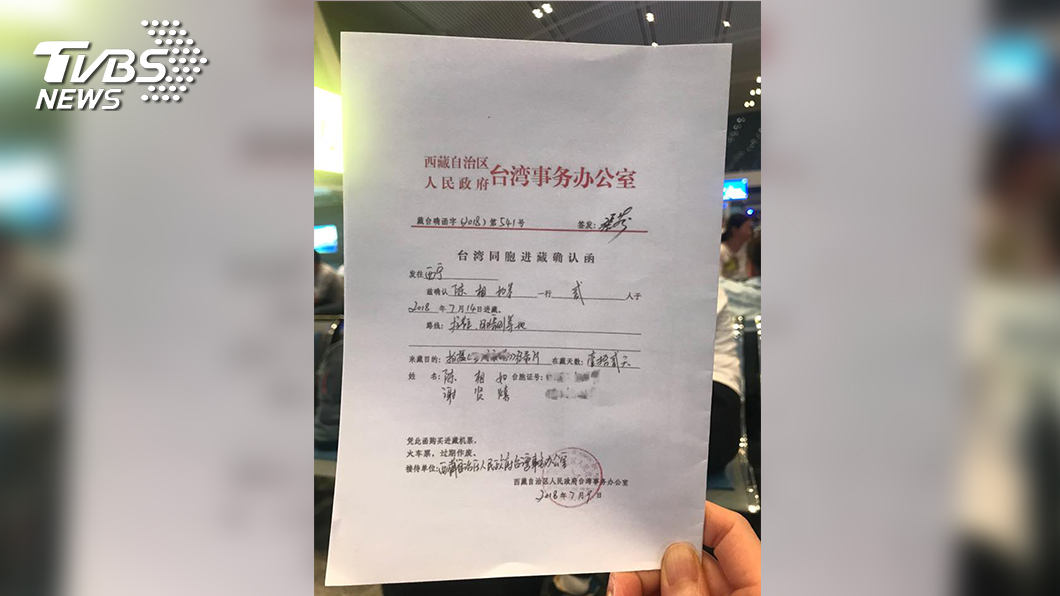 TVBS
NEWS
西藏自治区
人民政府 台湾事务办公室
藏台确函字(2018)第541号 签发:
台湾同胞进藏确认函
发往西宁
兹确认陈相如等一行贰人于
2018年7月14日进藏。
路线:拉萨、日喀则等地
来藏目的:拍摄 片 在藏天数:壹拾贰天
姓 名:陈 相 如 台胞证号:
谢
凭此函购买进藏机票。
火车票,过期作废。
接待单位:西藏自治区人民政府台湾事务办公室
西藏自治区人民政府台湾事务办公室
2018年7月9日